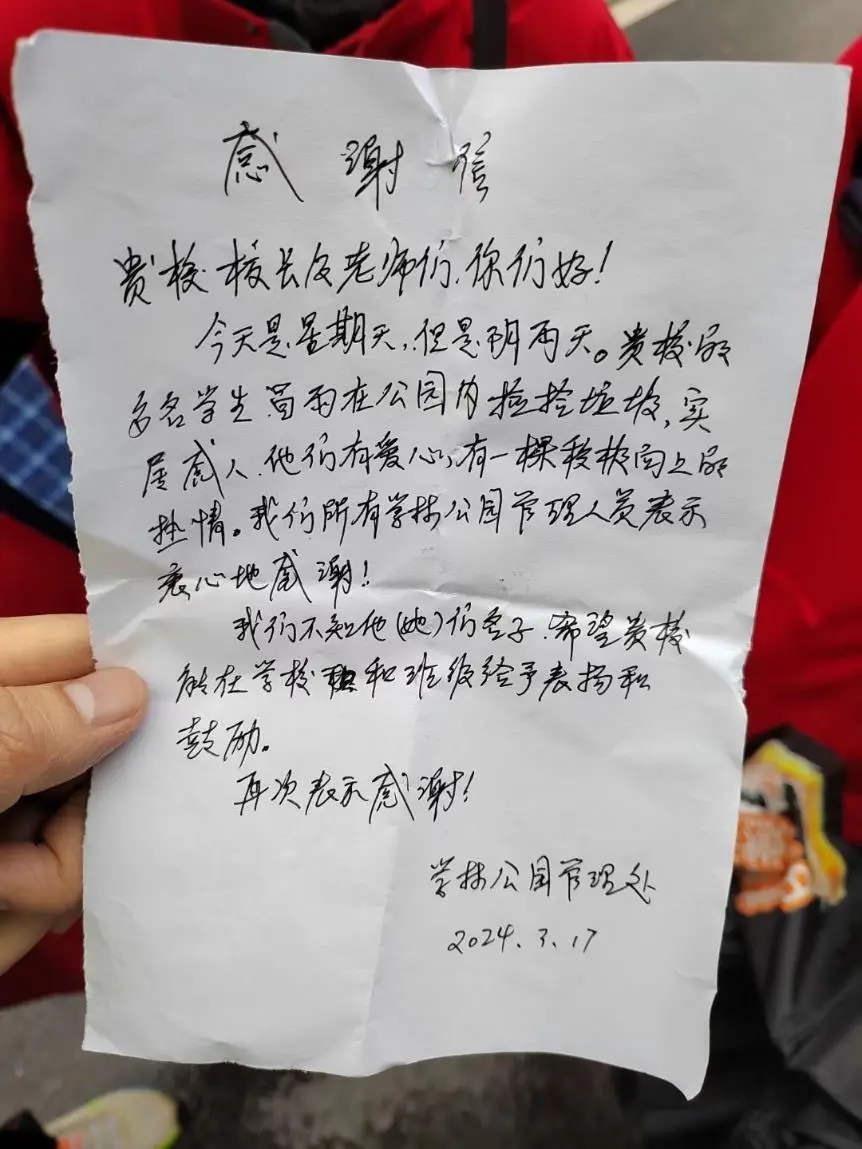 感谢信
贵校校长及老师们,你们好!
今天是星期天,但是阴雨天。贵校的
多名学生冒雨在公园内捡拾垃圾,实
属感人,他们有爱心,有一棵积极向上的
热情。我们所有学林公园管理人员表示
衷心地感谢!
我们不知他(她)们名子,希望贵校
能在学校和班级给予表扬和
鼓励。
再次表示感谢!
学林公园管理处
2024.3.17